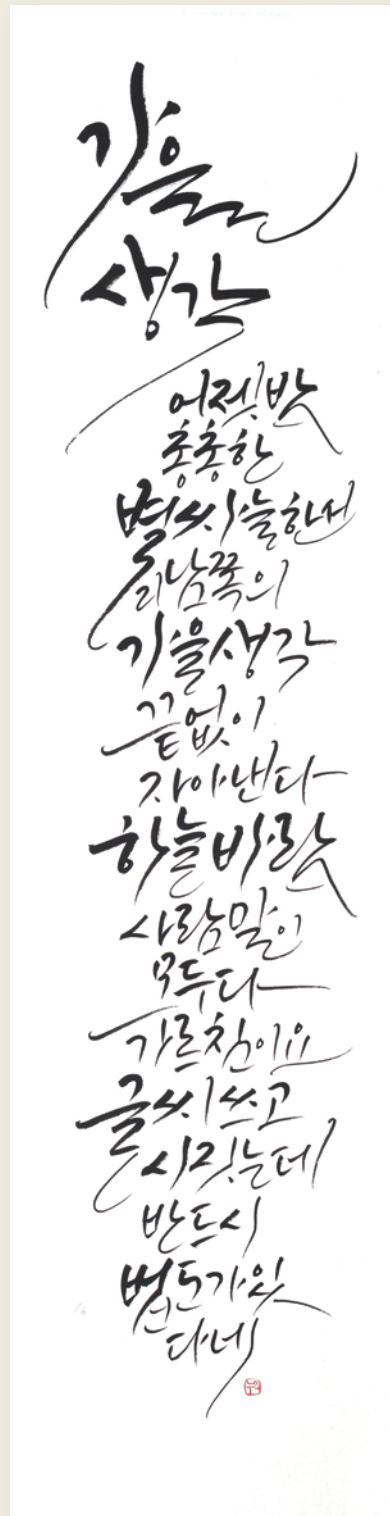 가을
생각
어젯밤
총총한
별싸늘한서
리남쪽의
가을생각
끝없이
자아낸다
하늘바람
사람말이
모두다
가르침이요
글씨쓰고
시짓는데
반드시
법도가있
다네